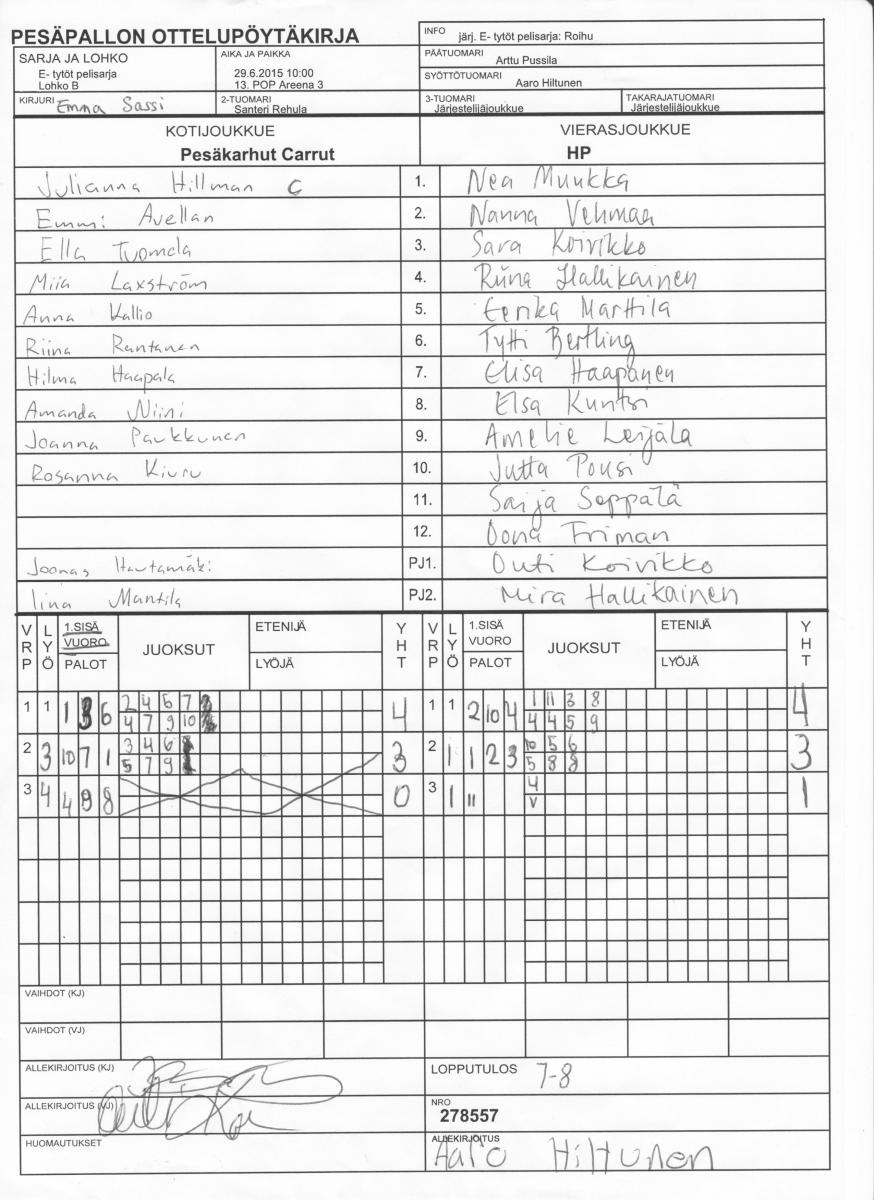 PESÄPALLON OTTELUPÖYTÄKIRJA
INFO järj. E- tytöt pelisarja: Roihu
SARJA JA LOHKO
E- tytöt pelisarja
Lohko B
AIKA JA PAIKKA
29.6.2015 10:00
13. POP Areena 3
PÄÄTUOMARI
Arttu Pussila
SYÖTTÖTUOMARI
Aaro Hiltunen
KIRJURI Emma Sassi
2-TUOMARI
Santeri Rehula
3-TUOMARI
Järjestelijäjoukkue
TAKARAJATUOMARI
Järjestelijäjoukkue
KOTIJOUKKUE VIERASJOUKKUE
Pesäkarhut Carrut HP
Julianna Hillman C 1. Nea Muukka
Emmi Avellan 2. Nanna Vehmaa
Ella Tuomola 3. Sara Koivikko
Miia Laxström 4. Riina Hallikainen
Anna Kallio 5. Eerika Marttila
Riina Rantanen 6. Tytti Bertling
Hilma Haapala 7. Elisa Haapanen
Amanda Niini 8. Elsa Kuntsi
Joanna Paukkunen 9. Amelie Leijala
Rosanna Kiuru 10. Jutta Pousi
11. Saija Seppälä
12. Oona Friman
Joonas Hautamäki PJ1. Outi Koivikko
Iina Mantila PJ2. Mira Hallikainen
VRP LYÖ 1.SISÄ VUORO PALOT JUOKSUT ETENIJÄ LYÖJÄ YHT VRP LYÖ 1.SISÄ VUORO PALOT JUOKSUT ETENIJÄ LYÖJÄ YHT
2 4 6 7 1 11 3 8
1 1 1 3 6 4 1 1 2 10 4 4
4 7 9 10 4 4 5 9
3 4 6 10 5 6
2 3 10 7 1 3 2 1 1 2 3 3
5 7 9 5 8 8
4
3 4 4 9 8 0 3 1 11 1
V
VAIHDOT (KJ)
VAIHDOT (VJ)
ALLEKIRJOITUS (KJ)
LOPPUTULOS 7-8
ALLEKIRJOITUS (VJ)
NRO
278557
HUOMAUTUKSET
ALLEKIRJOITUS
Aaro Hiltunen